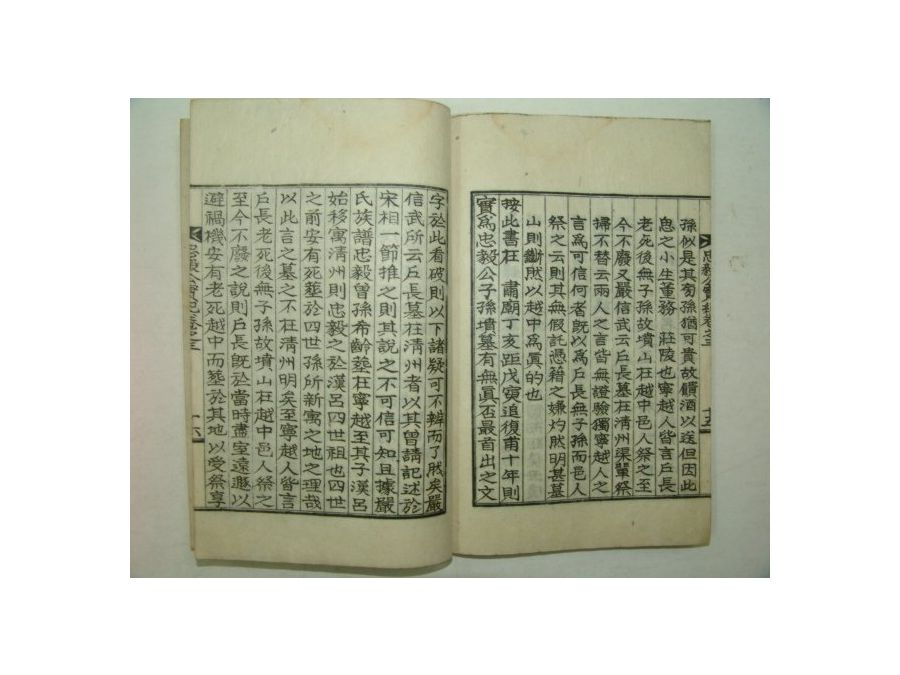 忠毅公實紀卷之三
十五
孫似是其旁孫猶可貴故饋酒以送但因此
思之小生董務 莊陵也寧越人皆言戶長
老死後無子孫故墳山在越中邑人祭之至
今不廢又嚴信武云戶長墓在淸州渠輩祭
掃不替云兩人之言皆無證驗獨寧越人之
言爲可信何者旣以爲戶長無子孫而邑人
祭之云則其無假託憑籍之嫌灼然明甚墓
山則斷然以越中爲眞的也
按此書在 肅廟丁亥距戊寅追復甫十年則
實爲忠毅公子孫墳墓有無眞否最首出之文
字於此看破則以下諸疑可不辨而了然矣嚴
信武所云戶長墓在淸州者以其曾請記述於
宋相一節推之則其說之不可信可知且據嚴
氏族譜忠毅曾孫希齡葬在寧越至其子漢呂
始移寓淸州則忠毅之於漢呂四世祖也四世
之前安有死葬於四世孫所新寓之地之理哉
以此言之墓之不在淸州明矣至寧越人皆言
戶長老死後無子孫故墳山在越中邑人祭之
至今不廢之說則戶長旣於當時盡室遠遯以
避禍機安有老死越中而葬於其地以受祭享
忠毅公實紀卷之三
十六